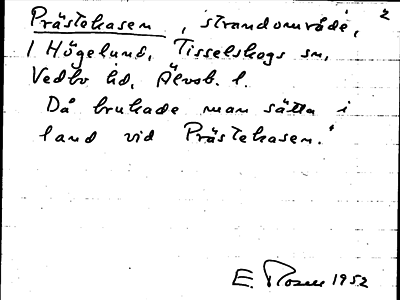 2
Prästekasen, strandområde,
i Högelund, Tisselskogs sn,
Vedbo hd, Älvsb. l.
Då brukade man sätta i
land vid Prästekasen."
E. Rosell 1952